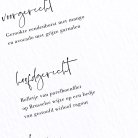 voorgerecht
Gerookte eendenborst met mango
en avocado met grijze garnalen
hoofdgerecht
Balletje van parelhoenfilet
op Brusselse wijze op een bedje
van gestoofd witloof ragout